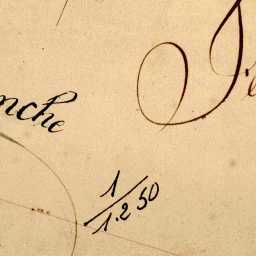 nche
1
1.250